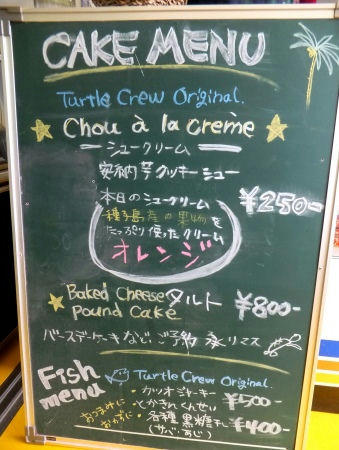 CAKE MENU
Turtle Crew Original.
Chou à la creme
シュークリーム
安納芋クッキーシュー
本日のシュークリーム ¥250-
種子島産の果物を
たっぷり使ったクリーム
オレンジ
Baked Cheese タルト ¥800-
pound cake
バースデーケーキなど、ご予約承りマス
Fish menu
Turtle Crew Original.
おつまみに おかずに
・カツオジャーキー ¥500-
・とかきれくんせい
・各種黒糖干し ¥400-
(サバ・あじ)